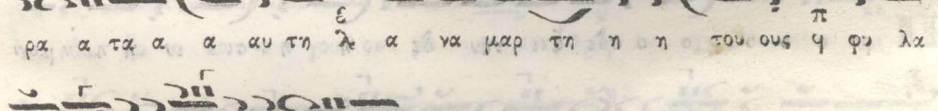 ρα α τα α α αυ τη λ α να μαρ τη η η του ους q φυ λα